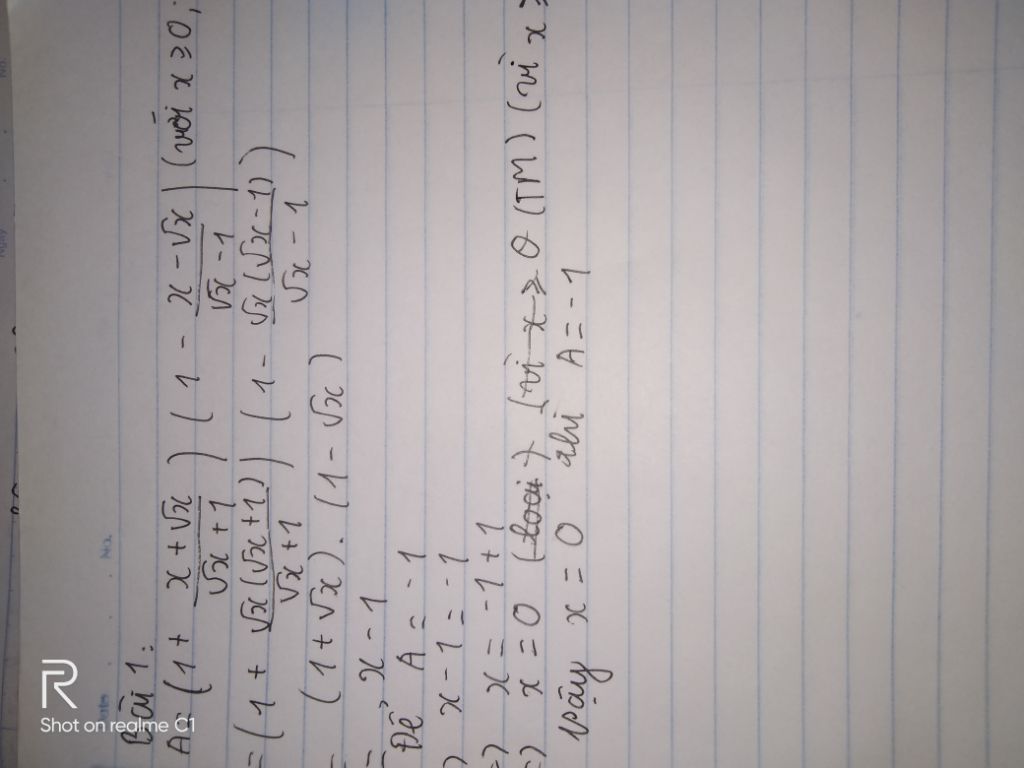 Bài 1:
A = (1 + x + √x / √x + 1) (1 - x - √x / √x - 1) (với x ≥ 0;
= (1 + √x(√x + 1) / √x + 1) (1 - √x(√x - 1) / √x - 1)
= (1 + √x) . (1 - √x)
= x - 1
Để A = -1
x - 1 = -1
=) x = -1 + 1
=) x = 0 (loại) (vì x ≥ 0 (TM) (vì x ≥
vậy x = 0 khi A = -1
R
Shot on realme C1